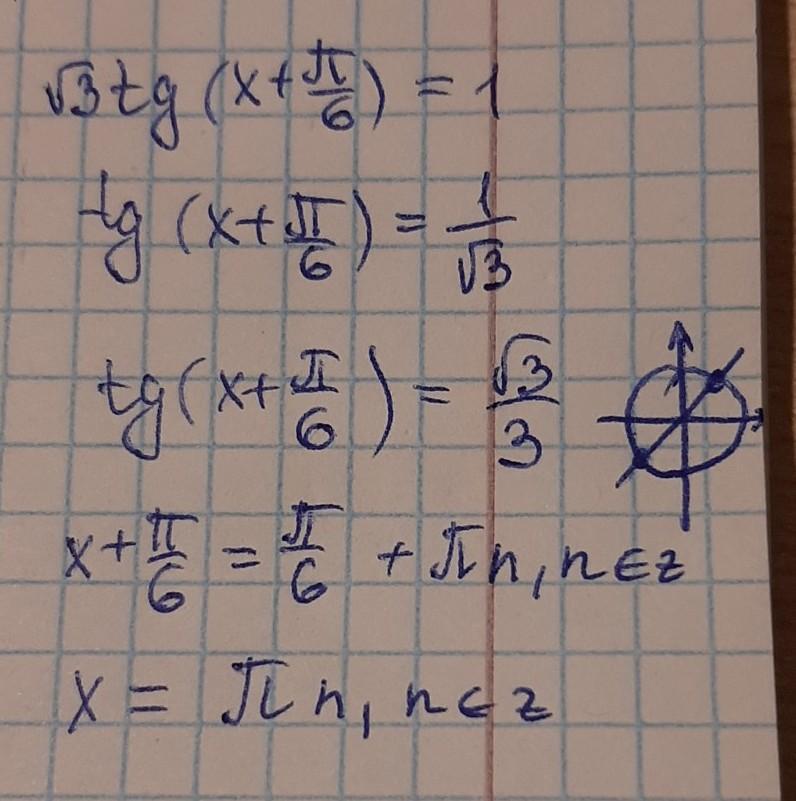 √3 tg (x + π/6) = 1
tg (x + π/6) = 1/√3
tg (x + π/6) = √3/3
x + π/6 = π/6 + πn, n ∈ z
x = πn, n ∈ z